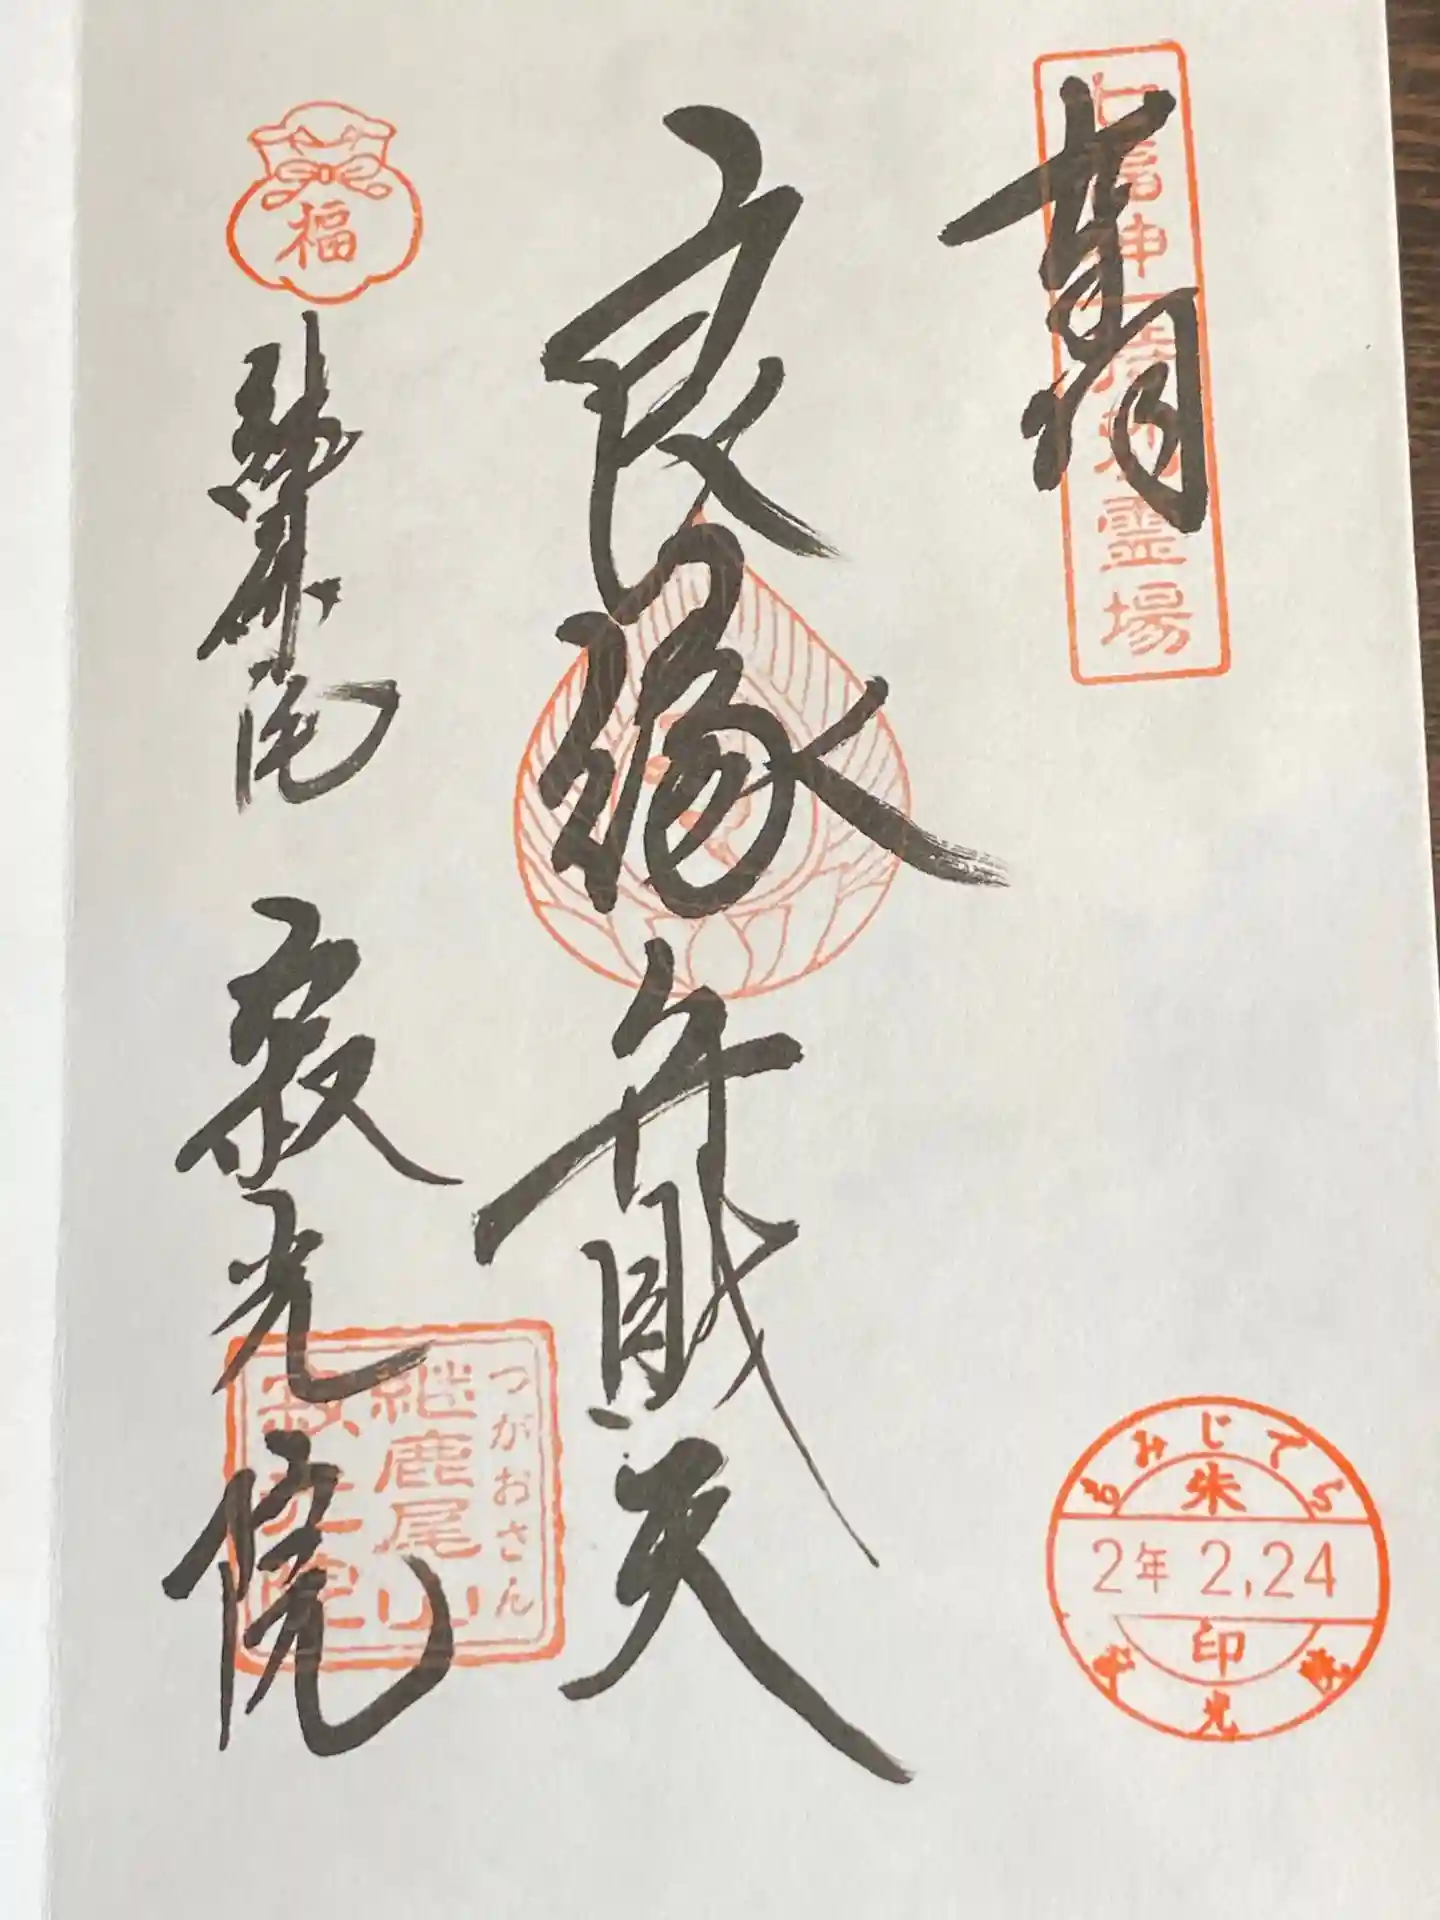 奉拝
七福神
霊場
良縁弁財天
福
継鹿尾 寂光院
つがおさん
継鹿尾山
寂光院
もみじでら
朱
2年 2.24
印
寂光院